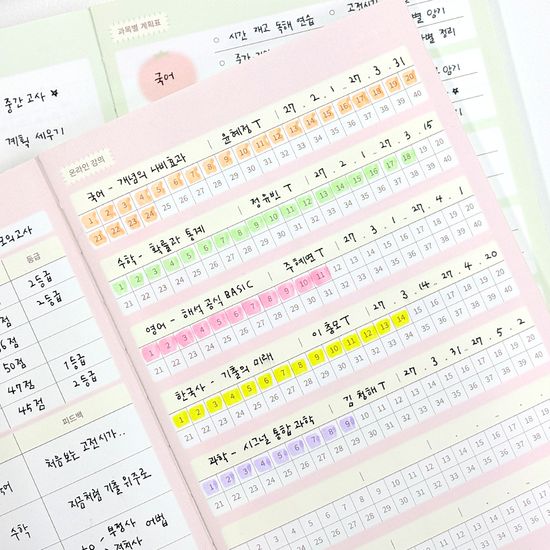 과목별 계획표
국어
시간 재고 독해 연습
고전시가
암기
정리
암기
중간고사 ★
계획 세우기
온라인 강의
국어 - 개념의 나비효과 윤혜정T 27. 2. 1 - 27. 3. 31
1 2 3 4 5 6 7 8 9 10 11 12 13 14 15 16 17 18 19 20
21 22 23 24 25 26 27 28 29 30 31 32 33 34 35 36 37 38 39 40
수학 - 확률과 통계 정유빈T 27. 2. 1 - 27. 3. 15
1 2 3 4 5 6 7 8 9 10 11 12 13 14 15 16 17 18 19 20
21 22 23 24 25 26 27 28 29 30 31 32 33 34 35 36 37 38 39 40
영어 - 해석 공식 BASIC 주혜연T 27. 3. 1 - 27. 4. 1
1 2 3 4 5 6 7 8 9 10 11 12 13 14 15 16 17 18 19 20
21 22 23 24 25 26 27 28 29 30 31 32 33 34 35 36 37 38 39 40
한국사 - 기출의 미래 이총모T 27. 3. 14 - 27. 4. 20
1 2 3 4 5 6 7 8 9 10 11 12 13 14 15 16 17 18 19 20
21 22 23 24 25 26 27 28 29 30 31 32 33 34 35 36 37 38 39 40
과학 - 시그널 통합 과학 김청해T 27. 3. 31 - 27. 5. 2
1 2 3 4 5 6 7 8 9 10 11 12 13 14 15 16 17 18 19 20
21 22 23 24 25 26 27 28 29 30 31 32 33 34 35 36 37 38 39 40
모의고사
등급
2등급
2등급
50점 1등급
47점 2등급
45점
피드백
처음보는 고전시가..
수학 지금처럼 기출 위주로
부정사 어법